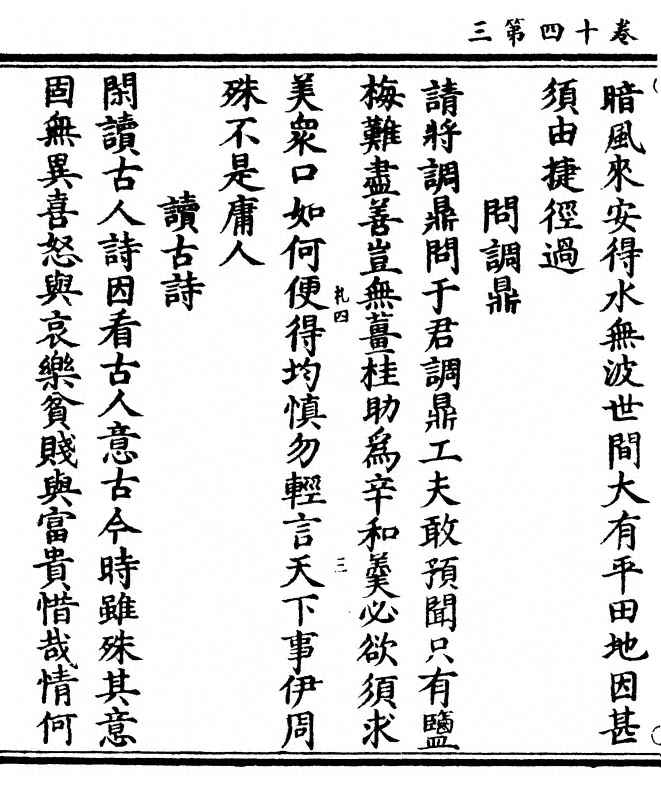 三第四十卷
暗風來安得水無波世間大有平田地因甚
須由捷徑過
問調鼎
請將調鼎問于君調鼎工夫敢預聞只有鹽
梅難盡善豈無薑桂助爲辛和羹必欲須求
美衆口如何便得均慎勿輕言天下事伊周
殊不是庸人
讀古詩
閑讀古人詩因看古人意古今時雖殊其意
固無異喜怒與哀樂貧賤與富貴惜哉情何
札四
三